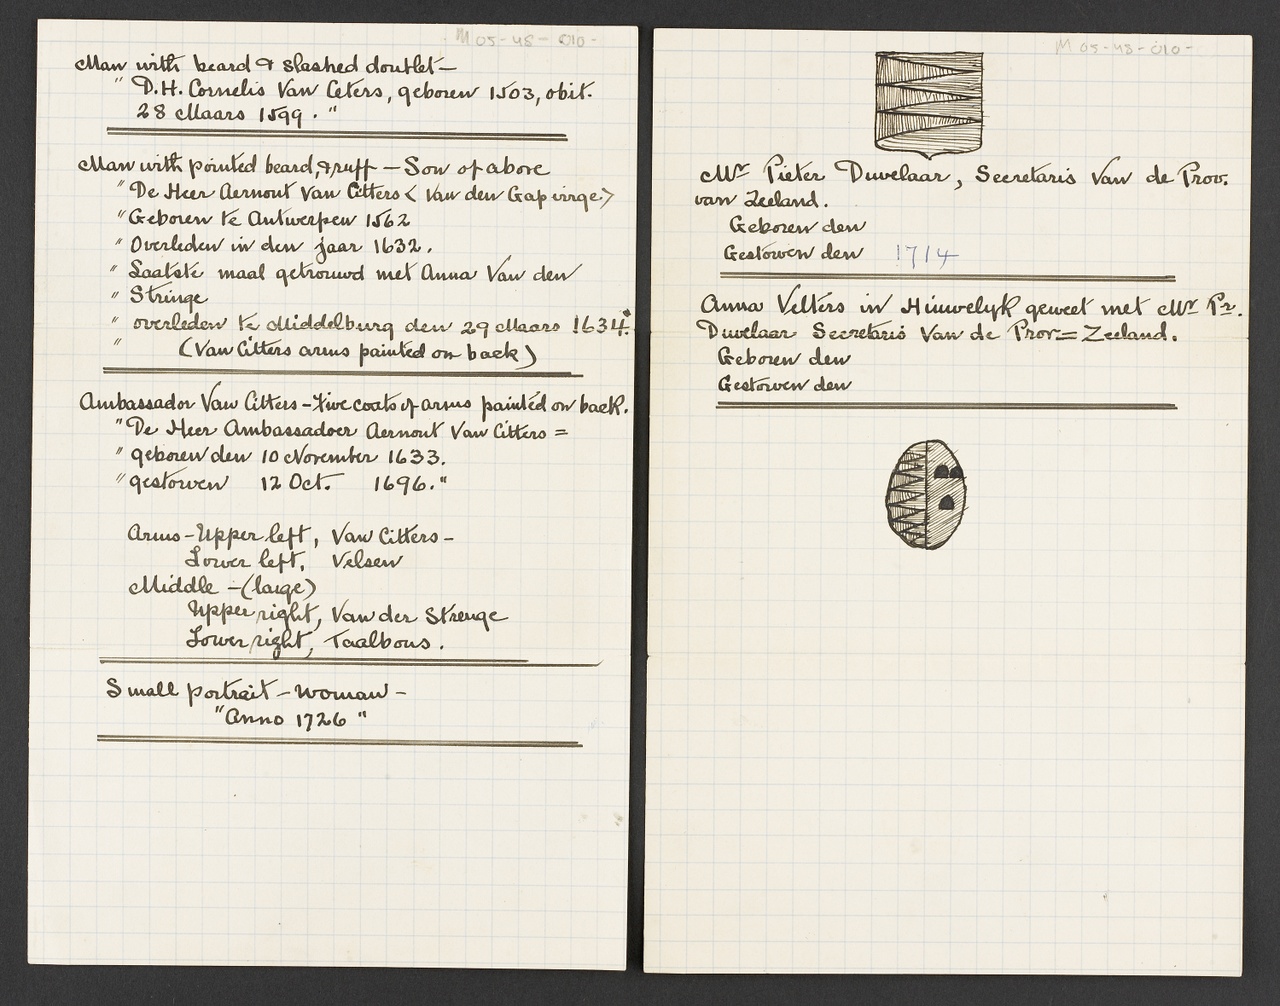 M 05-48-010-
Man with beard & slashed doublet—
" D.H. Cornelis Van Ceters, geboren 1503, obit.
28 Maars 1599. "
Man with pointed beard, & ruff — Son of above
" De Heer Aernout Van Citters < Van den
" Geboren te Antwerpen 1562
" Overleden in den jaar 1632.
" Laatste maal getrouwd met Anna Van den
" Stringe
" overleden te Middelburg den 29 Maars 1634."
" (Van Citters arms painted on back)
Ambassador Van Citters – Five coats of arms painted on back.
" De Heer Ambassadoer Aernout Van Citters =
" geboren den 10 November 1633.
" gestorven 12 Oct. 1696."
Arms – Upper left, Van Citters –
Lower left, Velsen
Middle – (large)
Upper right, Van der Strenge
Lower right, Taalbous.
Small portrait – woman –
"Anno 1726"
M 05-48-010-
Mr Pieter Duvelaar, Secretaris Van de Prov.
van Zeeland.
Geboren den
Gestorven den 1714
Anna Velters in Hiuwelyk geweet met Mr Pr.
Duvelaar Secretaris Van de Prov= Zeeland.
Geboren den
Gestorven den